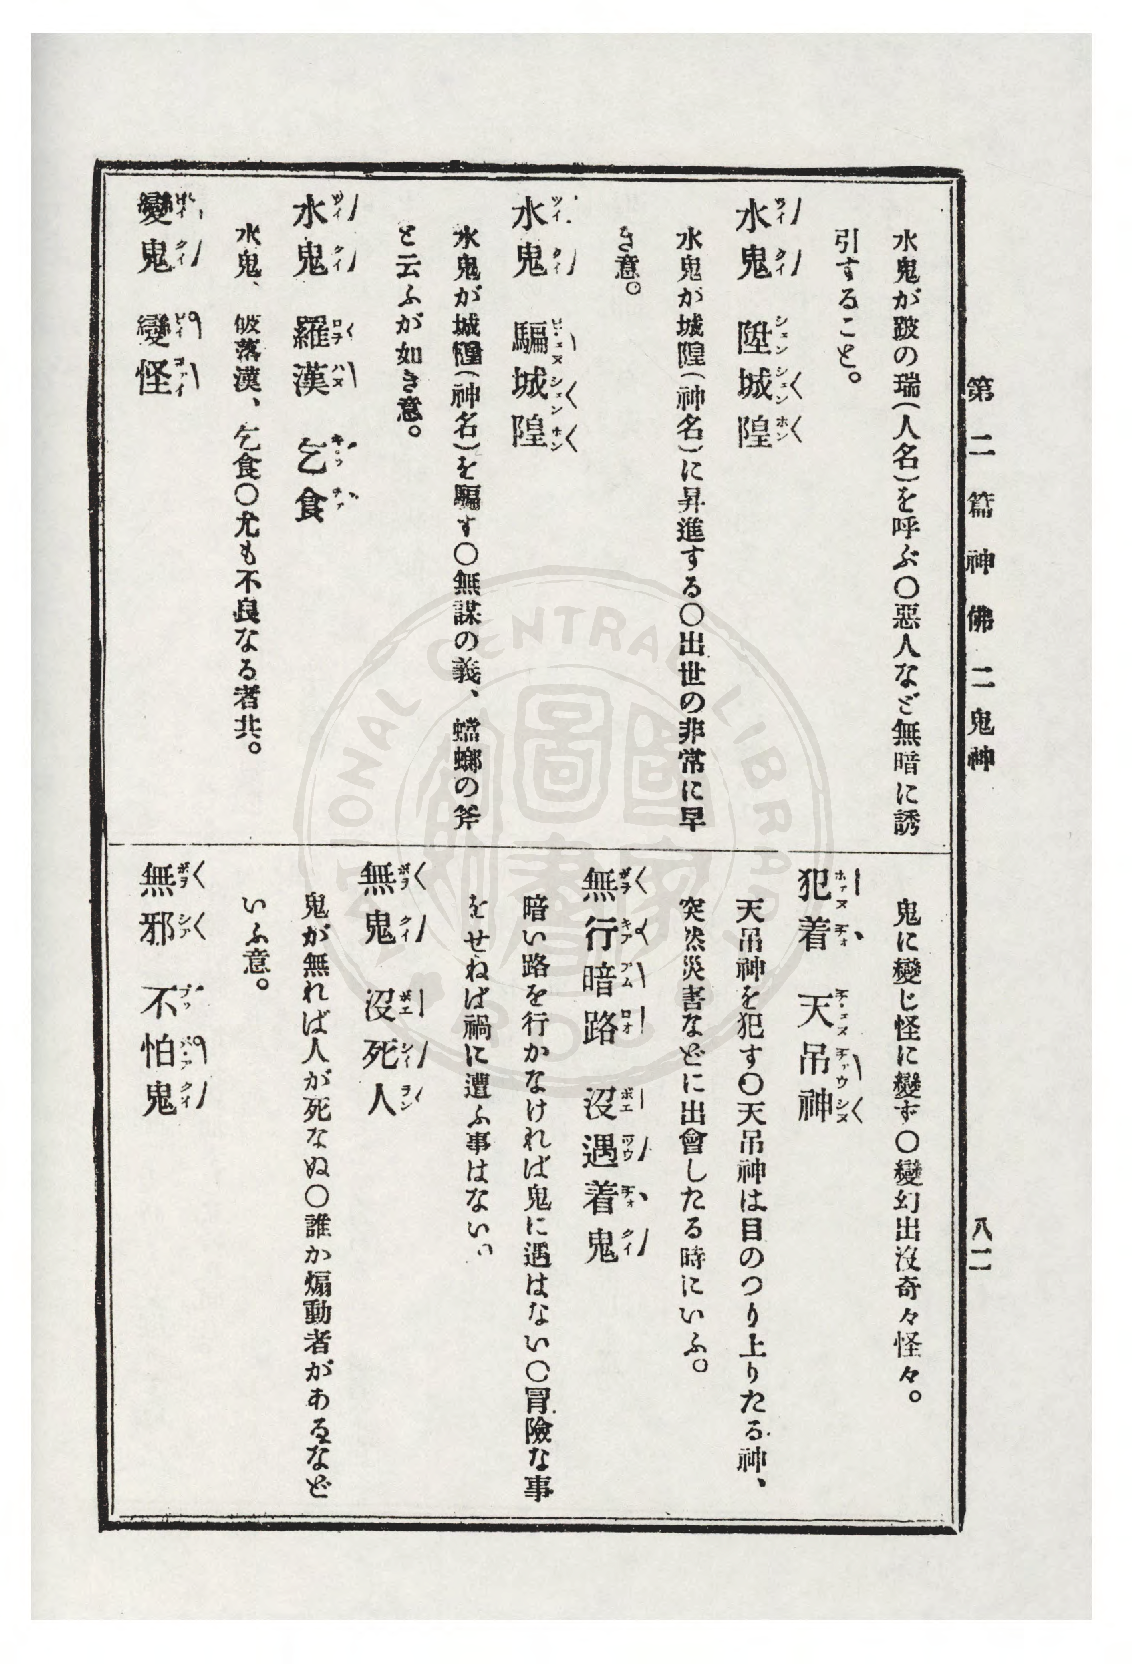 第二篇 神佛 二 鬼神
八二
水鬼が跛の瑞(人名)を呼ぶ〇惡人など無暗に誘
引すること。
水鬼 陞城隍
水鬼が城隍(神名)に昇進する〇出世の非常に早
き意。
水鬼 騙城隍
水鬼が城隍(神名)を騙す〇無謀の義、蟷螂の斧
と云ふが如き意。
水鬼 羅漢 乞食
水鬼、破落漢、乞食〇尤も不良なる者共。
變鬼 變怪
鬼に變じ怪に變ず〇變幻出沒奇々怪々。
犯着 天吊神
天吊神を犯す〇天吊神は目のつり上りたる神、
突然災害などに出會したる時にいふ。
無行暗路 沒遇着鬼
暗い路を行かなければ鬼に遇はない〇冒險な事
をせねば禍に遭ふ事はない。
無鬼 沒死人
鬼が無れば人が死なぬ〇誰か煽動者があるなど
いふ意。
無邪 不怕鬼